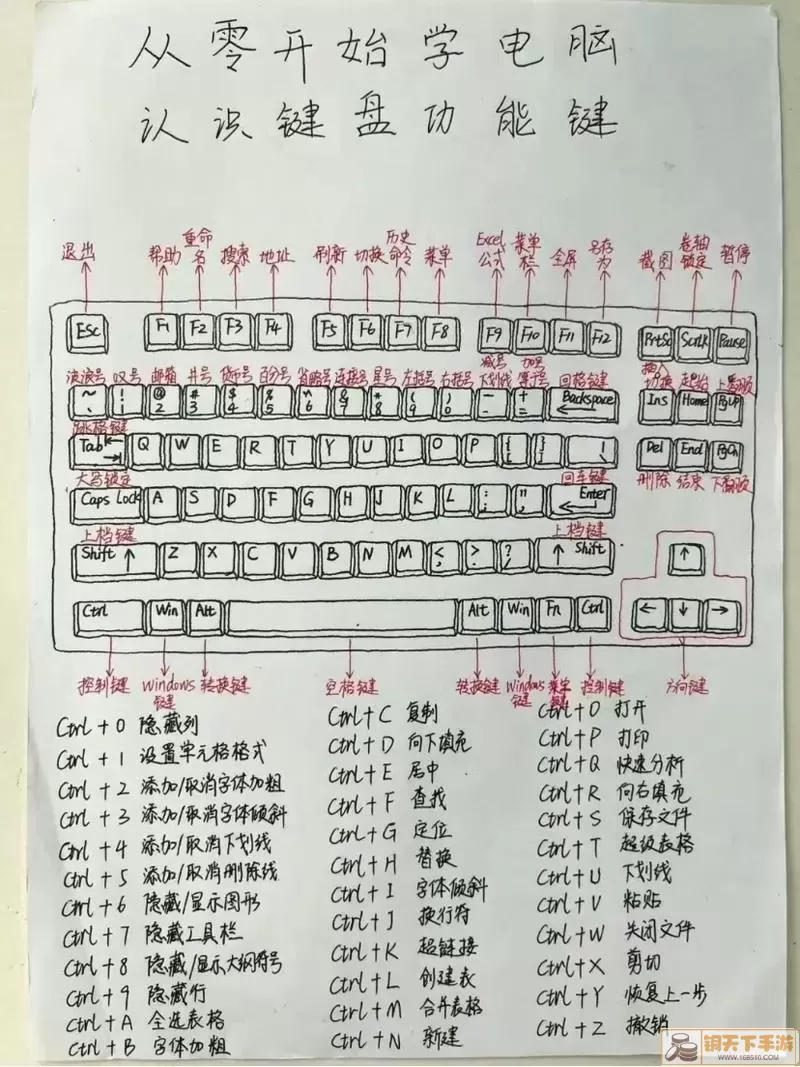 从零开始学电脑
认识键盘功能键
退出 帮助 重命名 搜索 地址 刷新 切换 历史命令 菜单 Excel公式 菜单栏 全屏 另存为 截图 卷轴锁定 暂停
Esc F1 F2 F3 F4 F5 F6 F7 F8 F9 F10 F11 F12 PrtSc ScrLK Pause
波浪号 叹号 邮箱 井号 货币号 百分号 省略号 连接号 星号 左括号 右括号 减号下划线 加号 回格键 切换 起始 上翻页
~ ` ! 1 @ 2 # 3 $ 4 % 5 ^ 6 & 7 * 8 ( 9 ) 0 - - + = Backspace Ins Home PgUp
跳格键
Tab Q W E R T Y U I O P { [ } ] | \ Del End PgDn
大写锁定 回车键 删除 结束 下翻页
Caps Lock A S D F G H J K L : ; " , Enter
上档键 上档键
Shift ↑ Z X C V B N M < , > . ? / ↑ Shift ↑
Ctrl Win Alt Alt Win Fn Ctrl ← ↓ →
控制键 Windows键 转换键 空格键 转换键 Windows键 菜单键 控制键 方向键
Ctrl + 0 隐藏列
Ctrl + 1 设置单元格格式
Ctrl + 2 添加/取消字体加粗
Ctrl + 3 添加/取消字体倾斜
Ctrl + 4 添加/取消下划线
Ctrl + 5 添加/取消删除线
Ctrl + 6 隐藏/显示图形
Ctrl + 7 隐藏工具栏
Ctrl + 8 隐藏/显示大纲符号
Ctrl + 9 隐藏行
Ctrl + A 全选表格
Ctrl + B 字体加粗
Ctrl + C 复制
Ctrl + D 向下填充
Ctrl + E 居中
Ctrl + F 查找
Ctrl + G 定位
Ctrl + H 替换
Ctrl + I 字体倾斜
Ctrl + J 换行符
Ctrl + K 超链接
Ctrl + L 创建表
Ctrl + M 合并表格
Ctrl + N 新建
Ctrl + O 打开
Ctrl + P 打印
Ctrl + Q 快速分析
Ctrl + R 向右填充
Ctrl + S 保存文件
Ctrl + T 超级表格
Ctrl + U 下划线
Ctrl + V 粘贴
Ctrl + W 关闭文件
Ctrl + X 剪切
Ctrl + Y 恢复上一步
Ctrl + Z 撤销
钥天下手游
www.168510.com